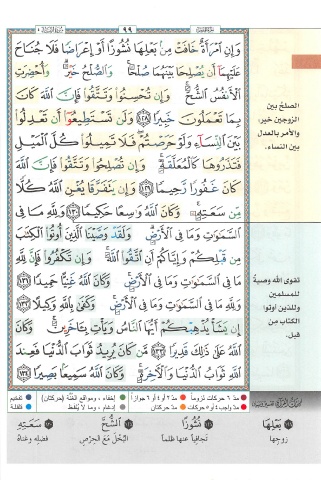 ٩٩
وَإِنِ ٱمْرَأَةٌ خَافَتْ مِنۢ بَعْلِهَا نُشُوزًا أَوْ إِعْرَاضًا فَلَا جُنَاحَ
عَلَيْهِمَآ أَن يُصْلِحَا بَيْنَهُمَا صُلْحًا ۚ وَٱلصُّلْحُ خَيْرٌ ۗ وَأُحْضِرَتِ
ٱلْأَنفُسُ ٱلشُّحَّ ۚ وَإِن تُحْسِنُوا۟ وَتَتَّقُوا۟ فَإِنَّ ٱللَّهَ كَانَ
بِمَا تَعْمَلُونَ خَبِيرًا ١٢٨ وَلَن تَسْتَطِيعُوٓا۟ أَن تَعْدِلُوا۟
بَيْنَ ٱلنِّسَآءِ وَلَوْ حَرَصْتُمْ ۖ فَلَا تَمِيلُوا۟ كُلَّ ٱلْمَيْلِ
فَتَذَرُوهَا كَٱلْمُعَلَّقَةِ ۚ وَإِن تُصْلِحُوا۟ وَتَتَّقُوا۟ فَإِنَّ ٱللَّهَ
كَانَ غَفُورًا رَّحِيمًا ١٢٩ وَإِن يَتَفَرَّقَا يُغْنِ ٱللَّهُ كُلًّا
مِّن سَعَتِهِۦ ۚ وَكَانَ ٱللَّهُ وَٰسِعًا حَكِيمًا ١٣٠ وَلِلَّهِ مَا فِى
ٱلسَّمَٰوَٰتِ وَمَا فِى ٱلْأَرْضِ ۗ وَلَقَدْ وَصَّيْنَا ٱلَّذِينَ أُوتُوا۟ ٱلْكِتَٰبَ
مِن قَبْلِكُمْ وَإِيَّاكُمْ أَنِ ٱتَّقُوا۟ ٱللَّهَ ۚ وَإِن تَكْفُرُوا۟ فَإِنَّ لِلَّهِ
مَا فِى ٱلسَّمَٰوَٰتِ وَمَا فِى ٱلْأَرْضِ ۚ وَكَانَ ٱللَّهُ غَنِيًّا حَمِيدًا ١٣١
وَلِلَّهِ مَا فِى ٱلسَّمَٰوَٰتِ وَمَا فِى ٱلْأَرْضِ ۚ وَكَفَىٰ بِٱللَّهِ وَكِيلًا ١٣٢
إِن يَشَأْ يُذْهِبْكُمْ أَيُّهَا ٱلنَّاسُ وَيَأْتِ بِـَٔاخَرِينَ ۚ وَكَانَ
ٱللَّهُ عَلَىٰ ذَٰلِكَ قَدِيرًا ١٣٣ مَّن كَانَ يُرِيدُ ثَوَابَ ٱلدُّنْيَا فَعِندَ
ٱللَّهِ ثَوَابُ ٱلدُّنْيَا وَٱلْـَٔاخِرَةِ ۚ وَكَانَ ٱللَّهُ سَمِيعًۢا بَصِيرًا ١٣٤
الصلح بين
الزوجين خير،
والأمر بالعدل
بين النساء.
تقوى الله وصية
للمسلمين
وللذين أوتوا
الكتاب من
قبل.
مدّ ٦ حركات لزوماً مدّ ٢ أو ٤ أو ٦ جوازاً إخفاء، ومواقع الغُنَّة (حركتان) تفخيم
مدّ واجب ٤ أو ٥ حركات مدّ حركتان إدغام، وما لا يُلفظ قلقلة
بَعْلِهَا
زوجها
نُشُوزًا
تجافياً عنها ظلماً
الشُّحَّ
البُخْلَ مع الحِرْص
سَعَتِهِ
فضله وغناه